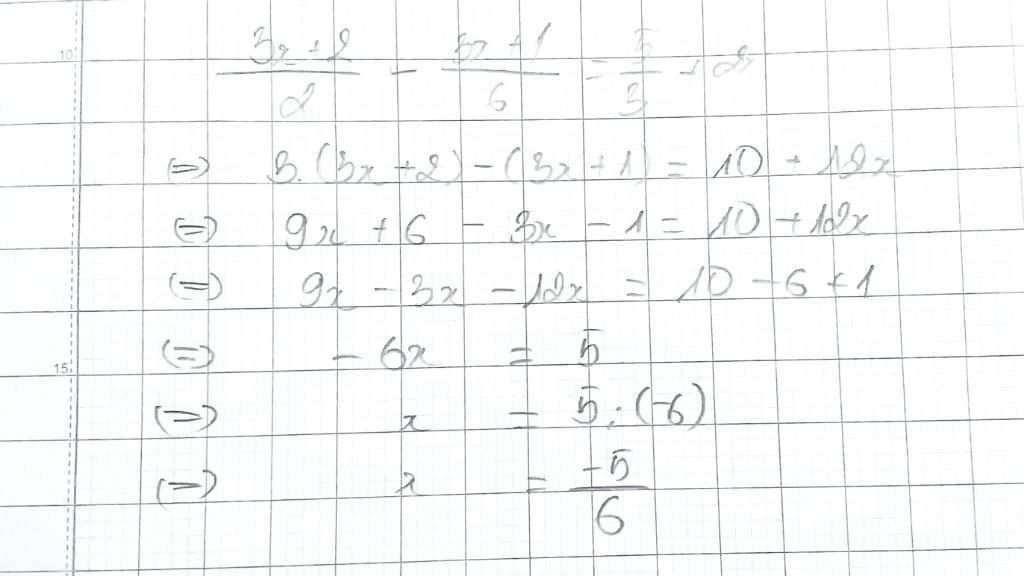 10
(3x+2)/2 - (3x+1)/6 = 5/3 + 2x
⇔ 3.(3x+2)-(3x+1) = 10 + 12x
⇔ 9x + 6 - 3x - 1 = 10 + 12x
⇔ 9x - 3x - 12x = 10 - 6 + 1
15 ⇔ - 6x = 5
⇔ x = 5:(-6)
⇔ x = -5/6